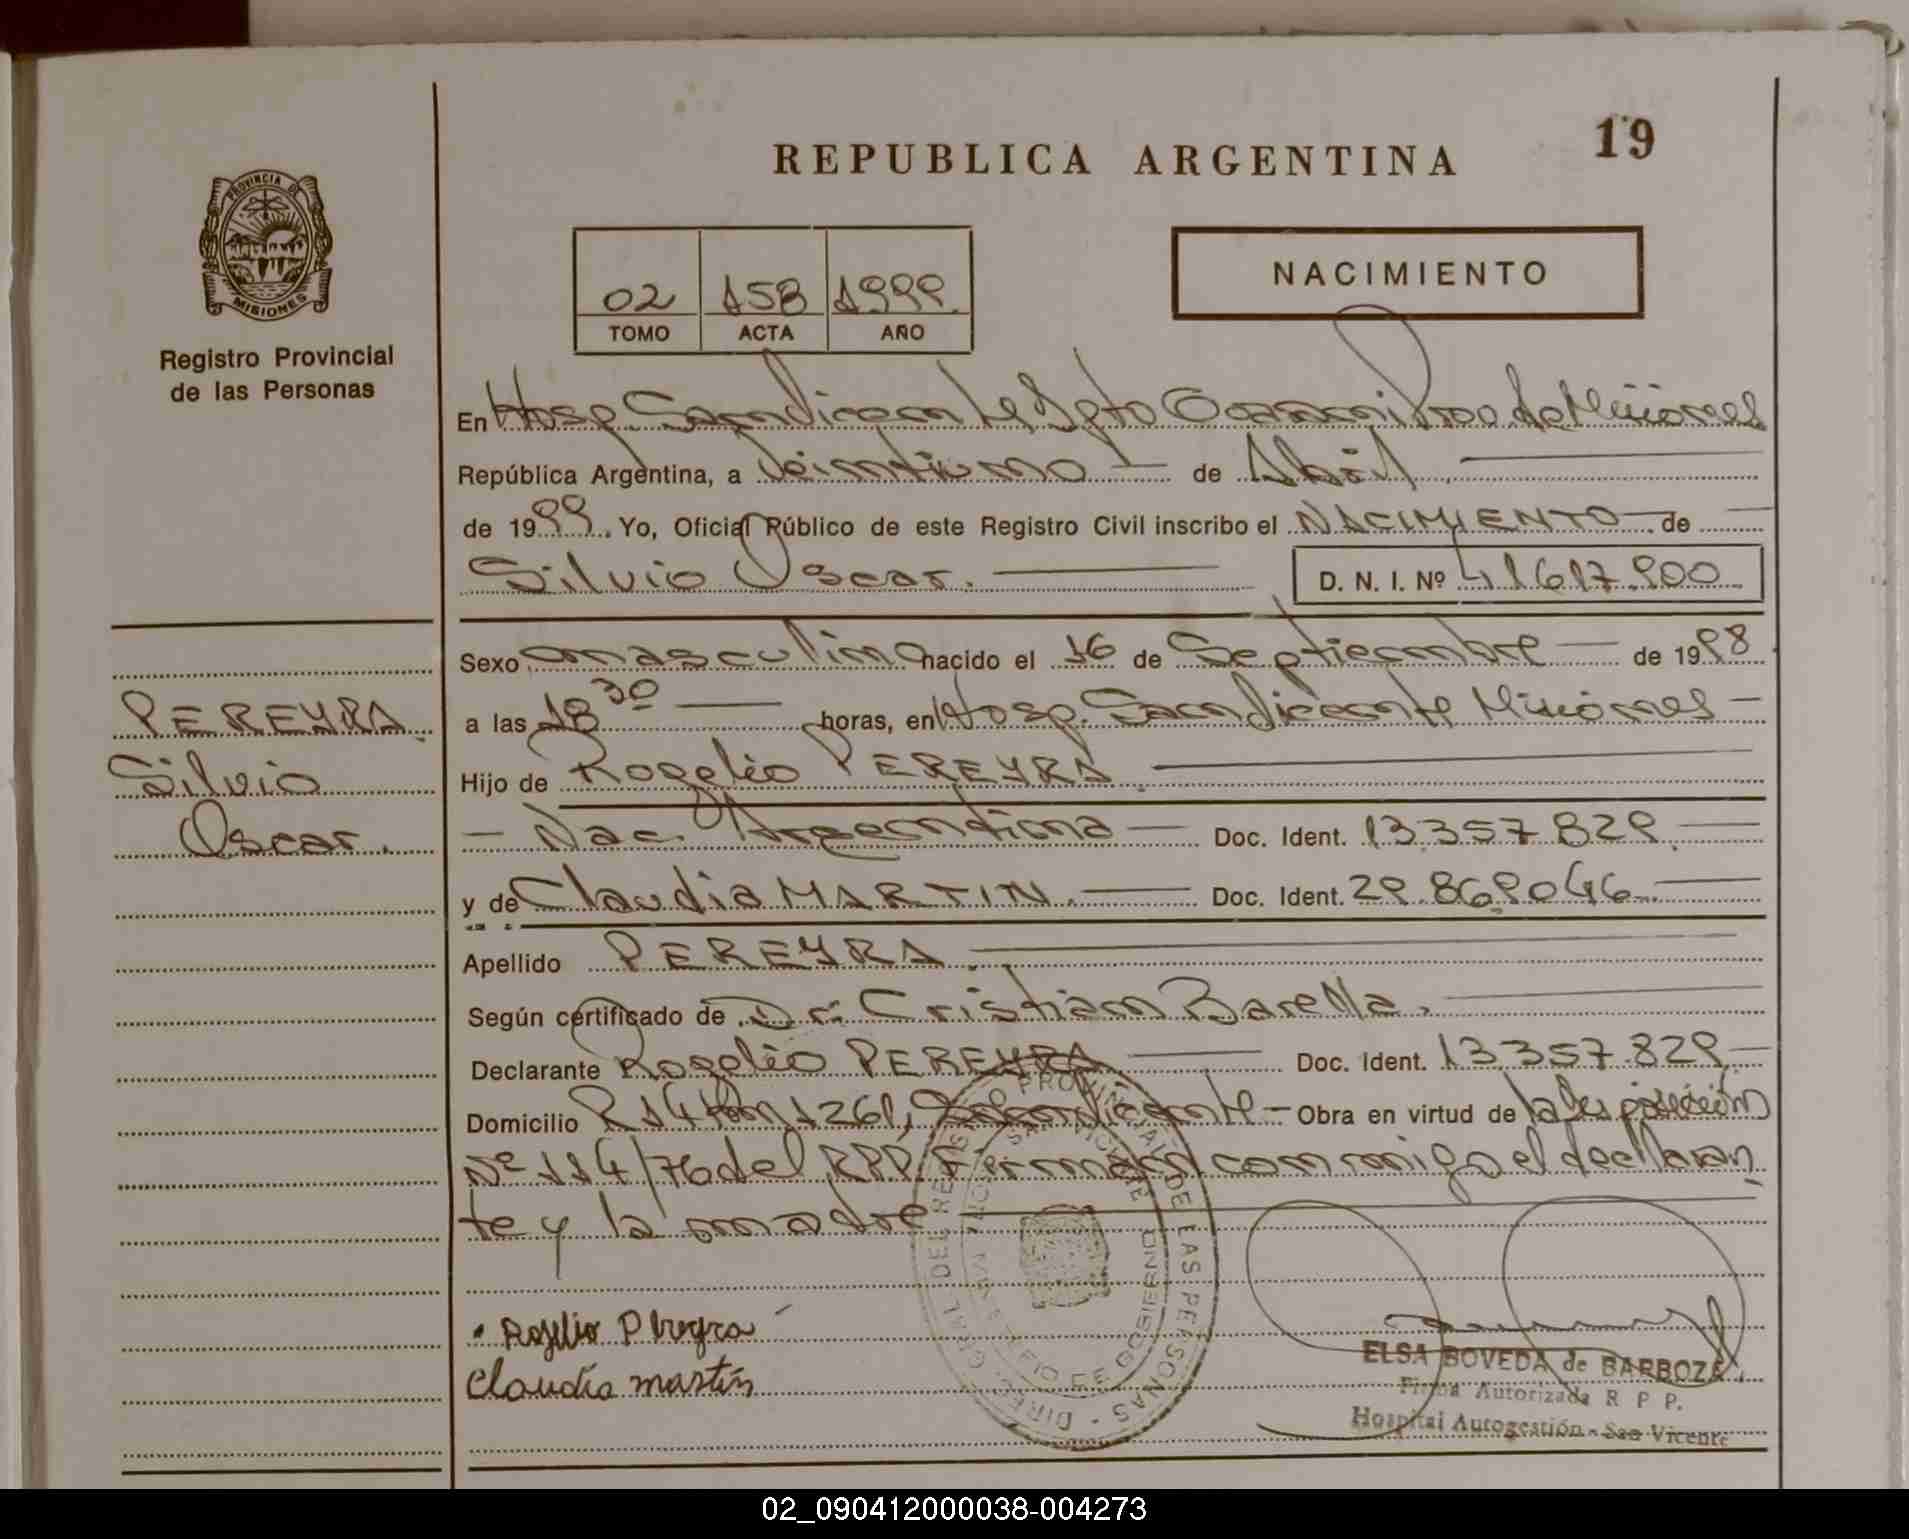 19
REPUBLICA ARGENTINA
PROVINCIA DE
MISIONES
Registro Provincial
de las Personas
02 158 1999
TOMO ACTA AÑO
NACIMIENTO
En Hosp. San Vicente Dpto Guaraní Prov. de Misiones
República Argentina, a veintiuno de Abril
de 1999. Yo, Oficial Público de este Registro Civil inscribo el NACIMIENTO de
Silvio Oscar. D. N. I. Nº 41.617.900
Sexo masculino nacido el 16 de Septiembre de 1998
a las 18 30 horas, en Hosp. San Vicente Misiones
Hijo de Rogelio PEREYRA
Nac. Argentina Doc. Ident. 13.357.829
y de Claudia MARTIN. Doc. Ident. 29.869.046
Apellido PEREYRA.
Según certificado de Dr. Cristian Barella.
Declarante Rogelio PEREYRA Doc. Ident. 13.357.829
Domicilio R14 Km 1261, San Vicente Obra en virtud de la disposición
Nº 114/76 del RPP. Firman conmigo el declaran
te y la madre
PEREYRA.
Silvio
Oscar.
Rogelio Pereyra
Claudia martin
DIREC. GRAL. DEL REGISTRO PROVINCIAL DE LAS PERSONAS
SAN VICENTE
ELSA BOVEDA de BARBOZA
Firma Autorizada R P P.
Hospital Autogestión - San Vicente
02_090412000038-004273